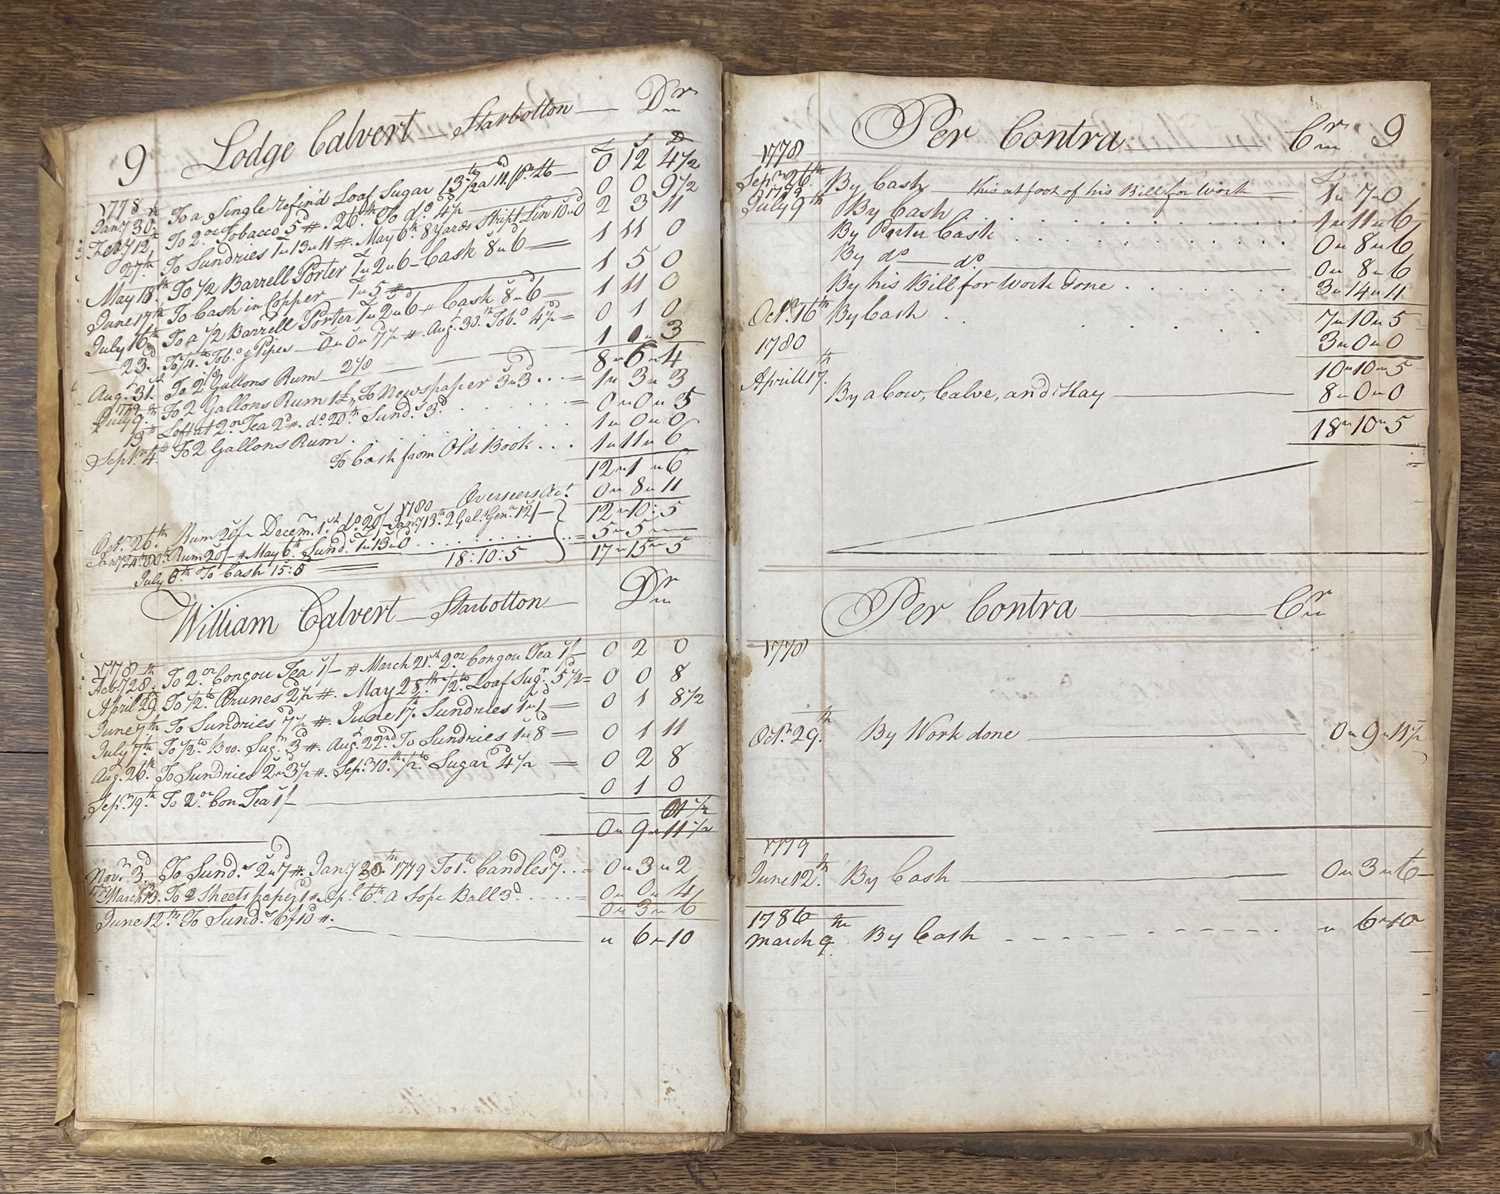 9 Lodge Calvert Starbotton Dr
£ S D
1778
Jany 30th To a Single refin'd Loaf Sugar 13lb 7/2 a 11d pr 0 12 4 1/2
Feby 12th To 2oz Tobacco 5d # 26th To do 4 1/2 0 0 9 1/2
27th To Sundries 1„13„11 # May 6th 8 Yards Stript Lin 10„0 2 3 11
May 18th To 1/2 Barrell Porter 1„2„6 Cash 8„6 1 11 0
June 17th To Cash in Copper 1„5 1 5 0
July 16th To a 1/2 Barrell Porter 1„2„6 + Cash 8„6 1 11 0
23d To 1/4 Tobo & Pipes 0„0„7 1/2 # Augt 30th Tobo 4 1/2 0 1 0
Augt 31st To 2 Gallons Rum 1 0„3
8„6„4
July 9th To 2 Gallons Rum To Newspaper 3d 1„3„3
13th 2oz Tea do 20th Sunds 3d 0„0„5
Septr 4th To 2 Gallons Rum 1„0„0
To Cash from Old Book 1„11„6
12„1„6
Overseers Act 0„8„11
1780
12„10„5
Octr 26th Rum 20/ Decemr 1st do 20/ Jany 13th 2 Gals Genr 12/ 5„5„
Rum 20/ # May 6th Sunds 1„13„0 17„15„5
July 8th To Cash 15:5 18:10:5
William Calvert Starbotton Dr
1778
To 2oz Congou Tea 1/ # March 21st 2oz Congou Tea 1/ 0 2 0
April 29 To 1/2lb Prunes 2 1/2 # May 28th 1/2lb Loaf Sugr 5 1/2 0 0 8
June 9th To Sundries 7 1/2 # June 17th Sundries 1„1 0 1 8 1/2
July 7th To 1/2lb Bro. Sugr 3d # Augt 22nd To Sundries 1„8 0 1 11
Augt 26th To Sundries 2„3 1/2 # Sepr 10th 1/2lb Sugar 4 1/2 0 2 8
Sepr 19th To 2oz Con Tea 1/ 0 1 0
01 1/2
0„9„11 1/2
Novr 3d To Sunds 2„7 # Jany 30th 1779 To 1lb Candles 7d 0„3„2
March 13 To 2 Sheets paper 1d Apl 6th a Sope Ball 3d 0„0„4
0„3„6
June 12th To Sunds 6/10 # „6„10
Per Contra Cr 9
1778
Sepr 26th By Cash this at foot of his Bill for Work 1„7„0
1779
July 9th By Cash 1„11„6
By Porter Cask 0„8„6
By do do 0„8„6
By his Bill for Work done 3„14„11
7„10„5
Octr 16th By Cash 3„0„0
1780
10„10„5
Aprill 17th By a Cow, Calve, and Hay 8„0„0
18„10„5
Per Contra Cr
1778
Octr 29th By Work done 0„9„11 1/2
1779
June 12th By Cash 0„3„6
1786
March 9th By Cash „6„10